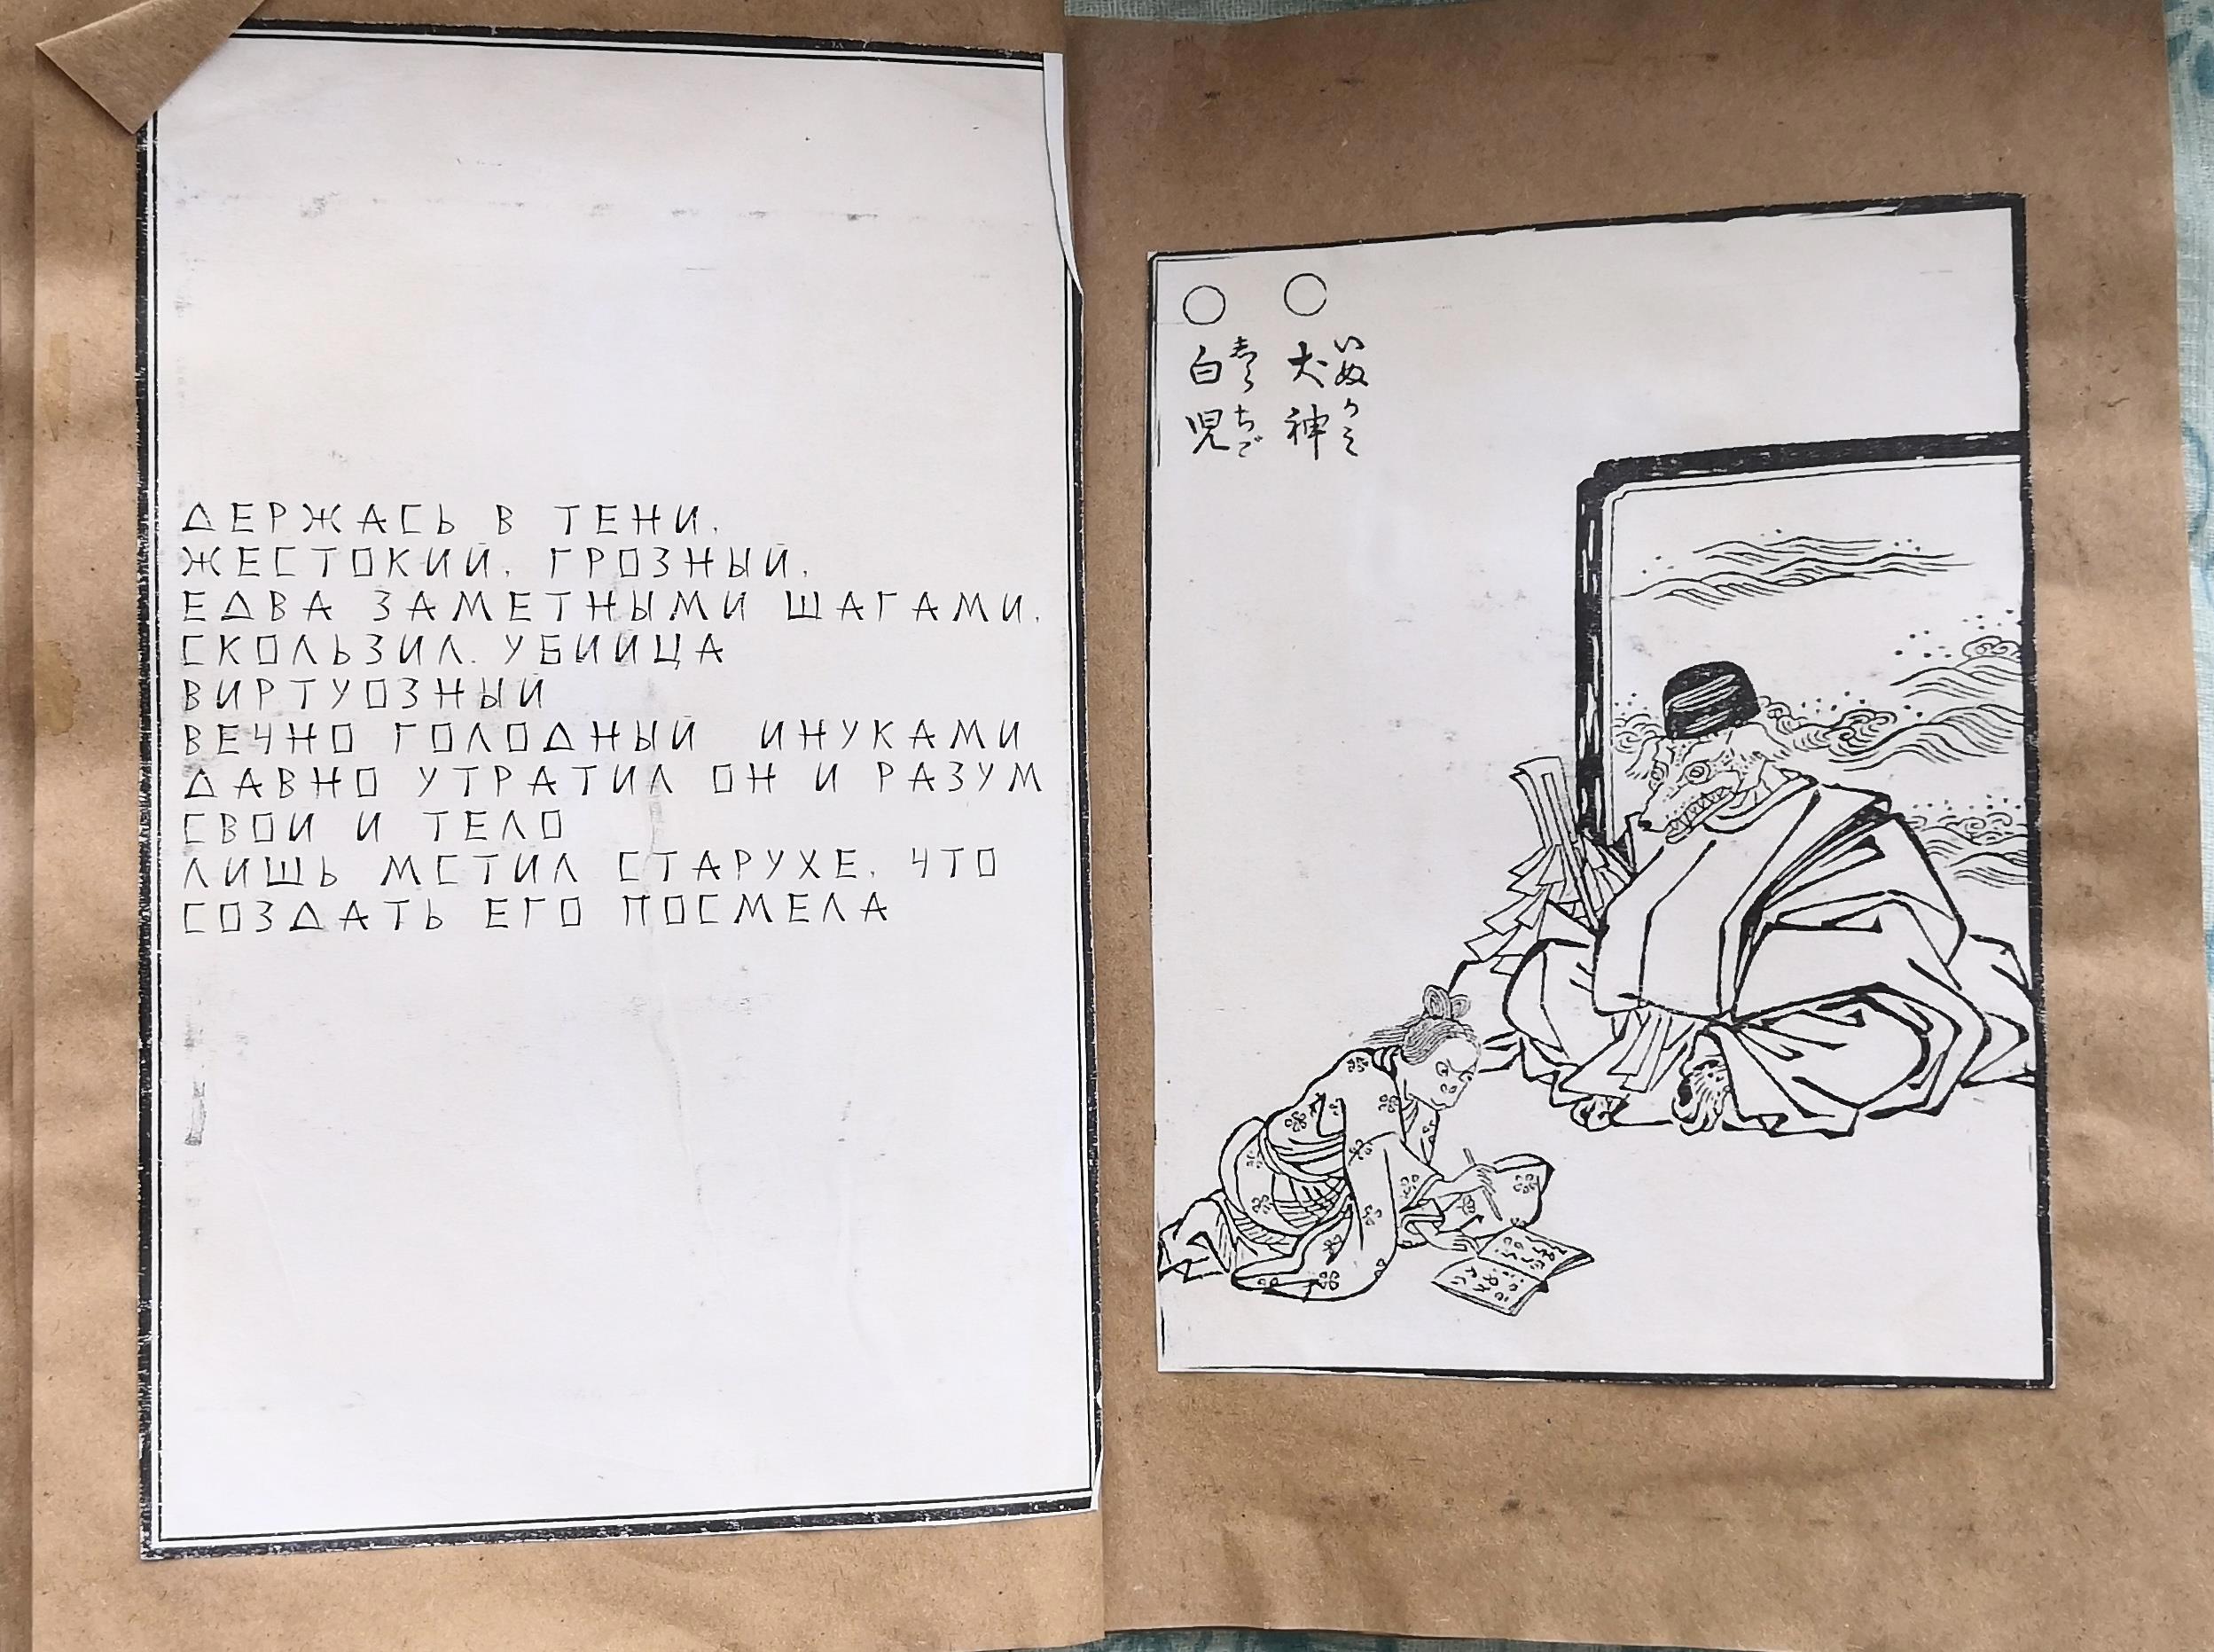 ДЕРЖАСЬ В ТЕНИ,
ЖЕСТОКИЙ, ГРОЗНЫЙ,
ЕДВА ЗАМЕТНЫМИ ШАГАМИ,
СКОЛЬЗИЛ. УБИЙЦА
ВИРТУОЗНЫЙ
ВЕЧНО ГОЛОДНЫЙ ИНУКАМИ
ДАВНО УТРАТИЛ ОН И РАЗУМ
СВОЙ И ТЕЛО
ЛИШЬ МСТИЛ СТАРУХЕ, ЧТО
СОЗДАТЬ ЕГО ПОСМЕЛА
犬神
いぬがみ
白児
しらちご